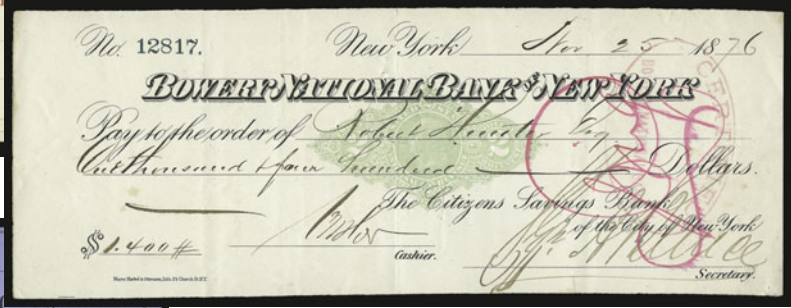 No. 12817. New York Nov 25 1876
BOWERY NATIONAL BANK OF NEW YORK
Pay to the order of Robert Esq
One thousand & four hundred Dollars.
The Citizens Savings Bank
of the City of New York
$1.400#
Cashier.
Secretary.